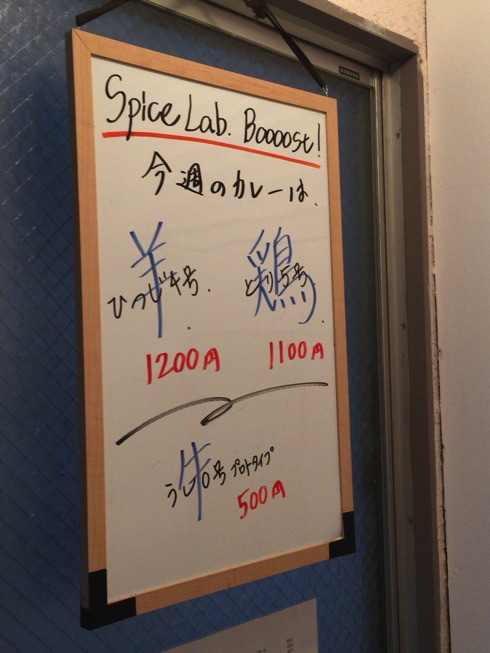 Spice Lab. Boooost!
今週のカレーは.
羊 鶏
ひつじ4号. とり5号
1200円 1100円
牛
うし0号 プロトタイプ
500円